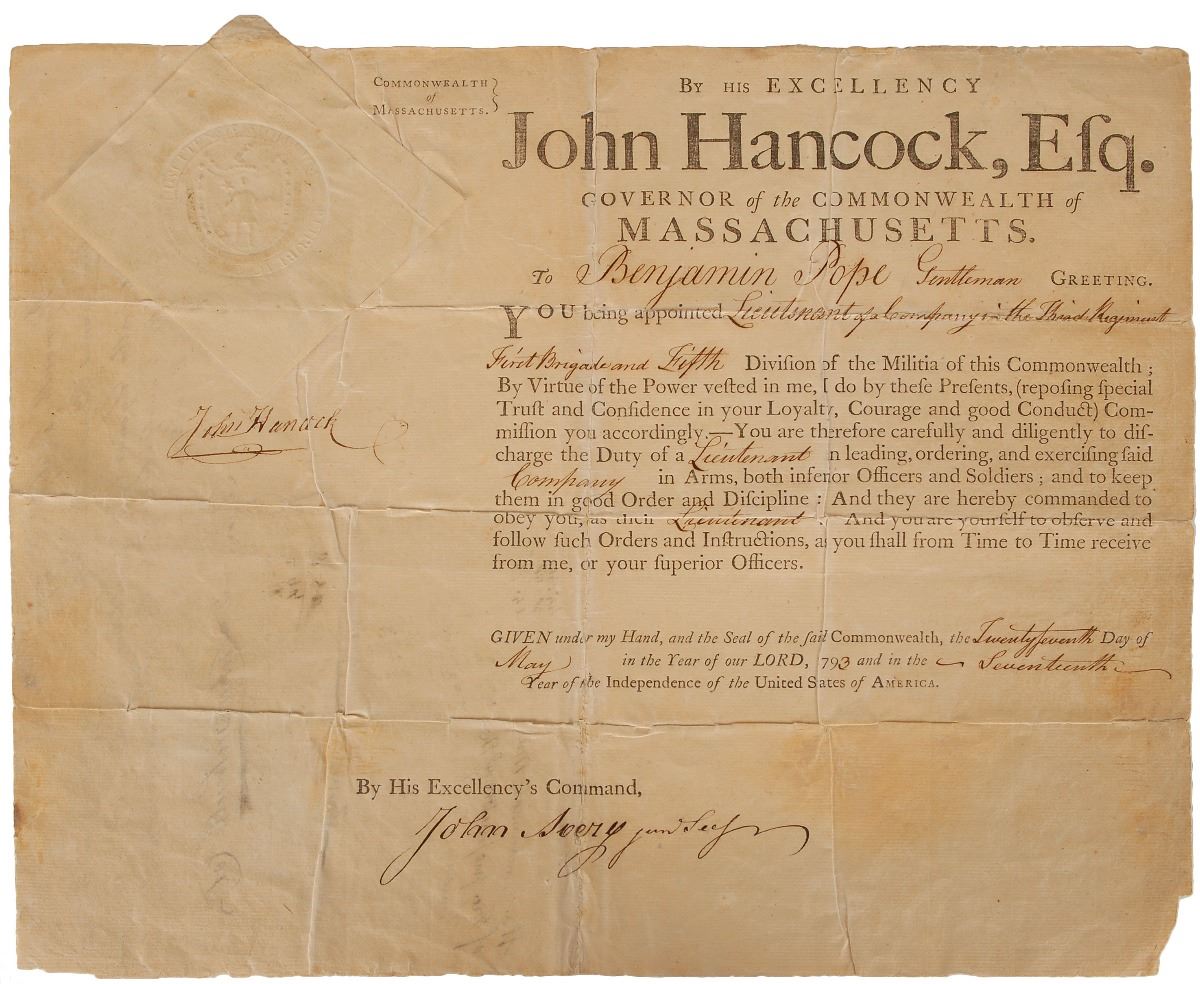 COMMONWEALTH
of
MASSACHUSETTS.
BY HIS EXCELLENCY
John Hancock, Eſq.
GOVERNOR of the COMMONWEALTH of
MASSACHUSETTS.
TO Benjamin Pope Gentleman GREETING.
YOU being appointed Lieutenant of a Company in the Third Regiment
First Brigade and Fifth Diviſion of the Militia of this Commonwealth ;
By Virtue of the Power veſted in me, I do by theſe Preſents, (repoſing ſpecial
Truſt and Confidence in your Loyalty, Courage and good Conduct) Com-
miſſion you accordingly.—You are therefore carefully and diligently to diſ-
charge the Duty of a Lieutenant in leading, ordering, and exerciſing ſaid
Company in Arms, both inferior Officers and Soldiers ; and to keep
them in good Order and Diſcipline : And they are hereby commanded to
obey you, as their Lieutenant : And you are yourſelf to obſerve and
follow ſuch Orders and Inſtructions, as you ſhall from Time to Time receive
from me, or your ſuperior Officers.
John Hancock
GIVEN under my Hand, and the Seal of the ſaid Commonwealth, the Twenty ſeventh Day of
May in the Year of our LORD, 793 and in the Seventeenth
Year of the Independence of the United States of AMERICA.
By His Excellency's Command,
John Avery junr Secy